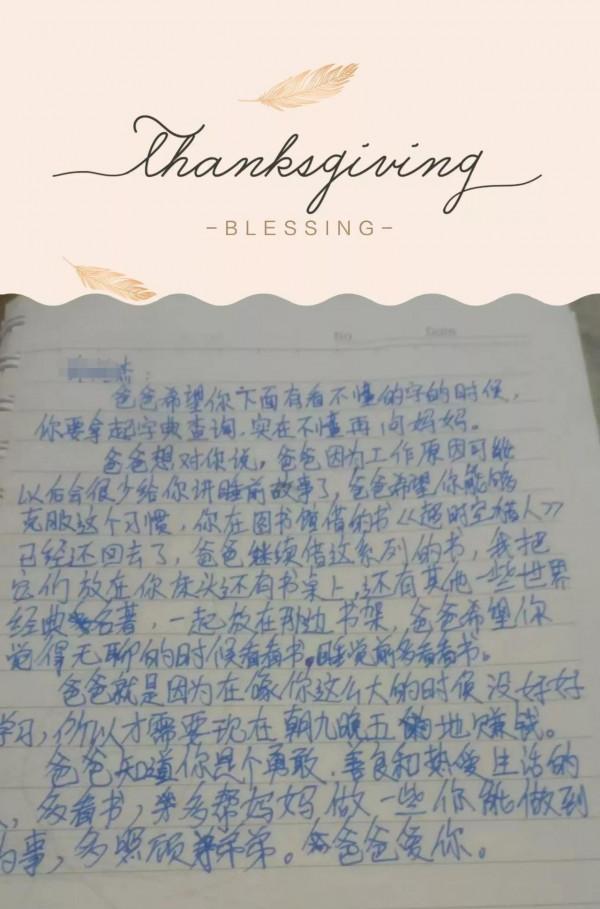 Thanksgiving
-BLESSING-
No
Date
杰：
爸爸希望你下面有看不懂的字的时候，
你要拿起字典查询，实在不懂再问妈妈。
爸爸想对你说，爸爸因为工作原因可能
以后会很少给你讲睡前故事了，爸爸希望你能够
克服这个习惯，你在图书馆借的书《超时空猫人》
已经还回去了，爸爸继续借这系列的书，我把
它们放在你床头还有书桌上，还有其他一些世界
经典名著，一起放在那边书架，爸爸希望你
觉得无聊的时候看看书，睡觉前多看看书。
爸爸就是因为在像你这么大的时候没好好
学习，所以才需要现在朝九晚五的地赚钱。
爸爸知道你是个勇敢、善良和热爱生活的
，多看书，多帮妈妈做一些你能做到
的事，多照顾弟弟。爸爸爱你。